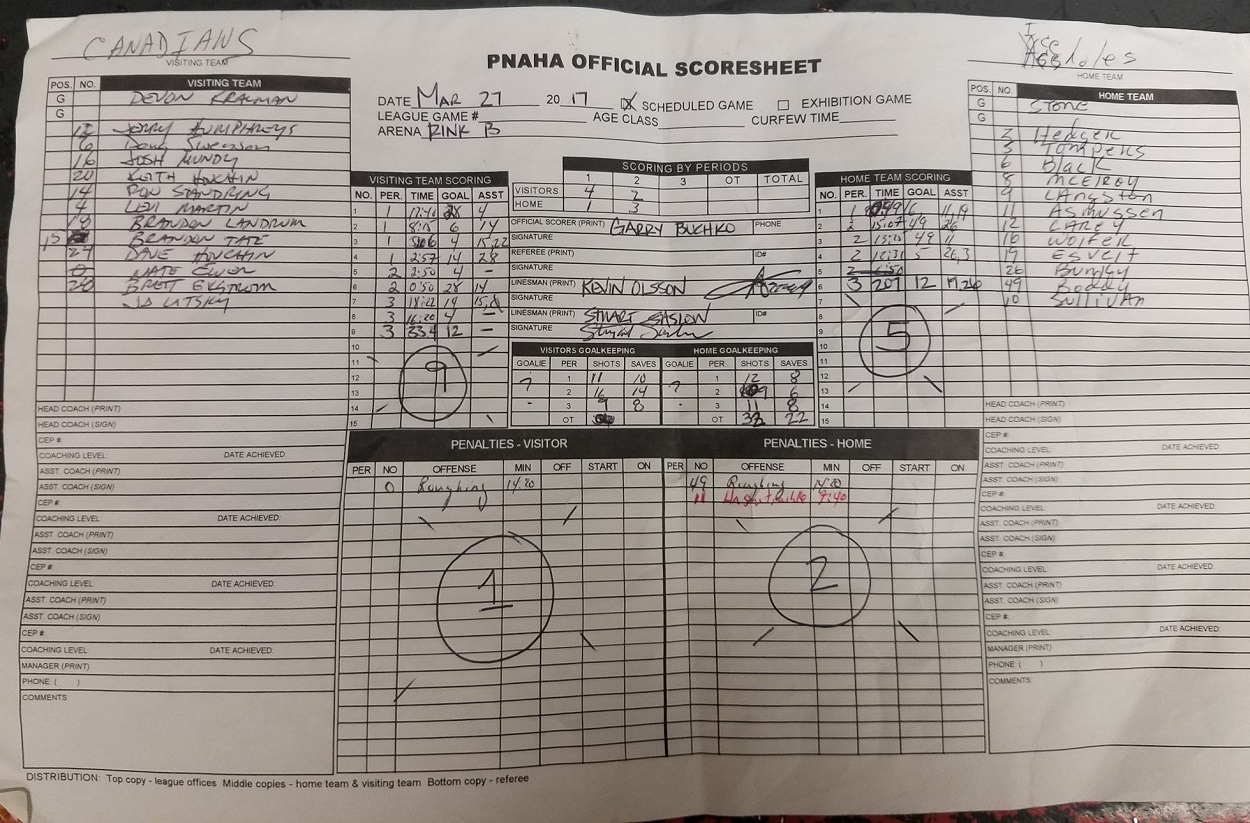 CANADIANS
VISITING TEAM
PNAHA OFFICIAL SCORESHEET
HOME TEAM
DATE MAR 27 2017 SCHEDULED GAME EXHIBITION GAME
LEAGUE GAME# AGE CLASS CURFEW TIME
ARENA RINK B
POS. NO. VISITING TEAM
G DEVON
G
12 JERRY HUMPHREYS
6 Doug Swenson
16 JOSH MUNDY
20 KEITH
14 RON STANDRING
4 LEVI MARTIN
BRANDON LANDRUM
15 BRANDON TATE
DAVE
0 NATE
BRETT EKSTROM
JD UTSKY
HEAD COACH (PRINT)
HEAD COACH (SIGN)
CEP #
COACHING LEVEL DATE ACHIEVED:
ASST COACH (PRINT)
ASST. COACH (SIGN)
CEP #:
COACHING LEVEL: DATE ACHIEVED:
ASST. COACH (PRINT)
ASST. COACH (SIGN)
CEP #:
COACHING LEVEL: DATE ACHIEVED:
ASST. COACH (PRINT)
ASST. COACH (SIGN)
CEP #:
COACHING LEVEL: DATE ACHIEVED:
MANAGER (PRINT)
PHONE: ( )
COMMENTS:
VISITING TEAM SCORING
NO. PER. TIME GOAL ASST
1 1 4
2 1 8:15 6 14
3 1 4 15,22
4 1 2:57 14 28
5 2 2:50 4 -
6 2 0:50 28 14
7 3 18:22 14 15,8
8 3 16:20 4 -
9 3 33.4 12 -
10
11
12
13
14
15
9
SCORING BY PERIODS
1 2 3 OT TOTAL
VISITORS 4 2
HOME 1 3
OFFICIAL SCORER (PRINT) GARRY BUCHKO PHONE
SIGNATURE
REFEREE (PRINT) ID#
SIGNATURE
LINESMAN (PRINT) KEVIN OLSSON
SIGNATURE
LINESMAN (PRINT) STUART SASLOW ID#
SIGNATURE
VISITORS GOALKEEPING HOME GOALKEEPING
GOALIE PER SHOTS SAVES GOALIE PER SHOTS SAVES
? 1 11 10 ? 1 12 8
2 16 14 2 9 6
- 3 9 8 - 3 11 8
OT OT 32 22
HOME TEAM SCORING
NO. PER. TIME GOAL ASST
1 1 6 11,19
2 2 15:07 49 26
3 2 49 11
4 2 5 26,3
5 2
6 3 207 12 19,26
7
8
9
10
11
12
13
14
15
5
POS. NO. HOME TEAM
G STONE
G
2 Hedger
3 Tompkins
6 Black
8 McElroy
9 LANgston
11 ASmussen
12 CAREY
16 Wolfer
19 ESVELT
26 Bumby
49 Boddy
10 Sullivan
HEAD COACH (PRINT)
HEAD COACH (SIGN)
CEP #:
COACHING LEVEL: DATE ACHIEVED:
ASST. COACH (PRINT)
ASST. COACH (SIGN)
CEP #:
COACHING LEVEL: DATE ACHIEVED:
ASST. COACH (PRINT)
ASST. COACH (SIGN)
CEP #:
COACHING LEVEL: DATE ACHIEVED:
ASST. COACH (PRINT)
ASST. COACH (SIGN)
CEP #:
COACHING LEVEL: DATE ACHIEVED:
MANAGER (PRINT)
PHONE: ( )
COMMENTS:
PENALTIES - VISITOR PENALTIES - HOME
PER NO OFFENSE MIN OFF START ON PER NO OFFENSE MIN OFF START ON
0 Roughing 14:20 49 Roughing 14:20
11 9:40
1
2
DISTRIBUTION: Top copy - league offices Middle copies - home team & visiting team Bottom copy - referee